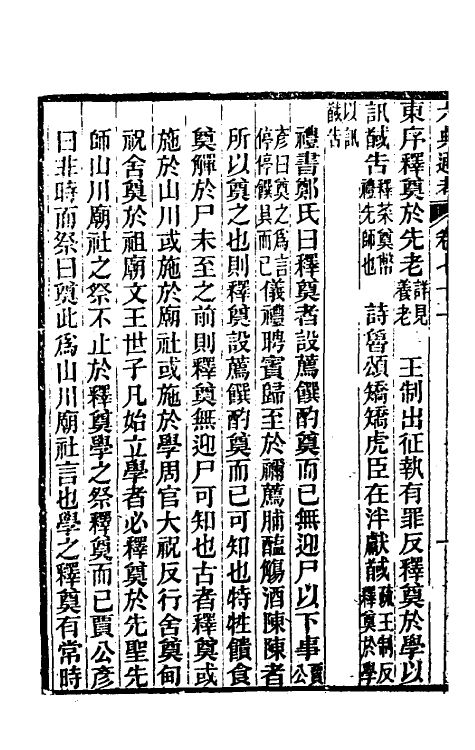 六典通考 卷七十
東序釋奠於先老詳見養老 王制出征執有罪反釋奠於學以
訊馘告釋菜奠幣禮先師也 詩魯頌矯矯虎臣在泮獻馘疏王制反釋奠於學
以訊馘告
禮書鄭氏曰釋奠者設薦饌酌奠而已無迎尸以下事賈公
彥曰奠之爲言停停饌具而已儀禮聘賓歸至於禰薦脯醢觴酒陳陳者
所以奠之也則釋奠設薦饌酌奠而已可知也特牲饋食
奠觶於尸未至之前則釋奠無迎尸可知也古者釋奠或
施於山川或施於廟社或施於學周官大祝反行舍奠甸
祝舍奠於祖廟文王世子凡始立學者必釋奠於先聖先
師山川廟社之祭不止於釋奠學之祭釋奠而已賈公彥
曰非時而祭曰奠此爲山川廟社言也學之釋奠有常時